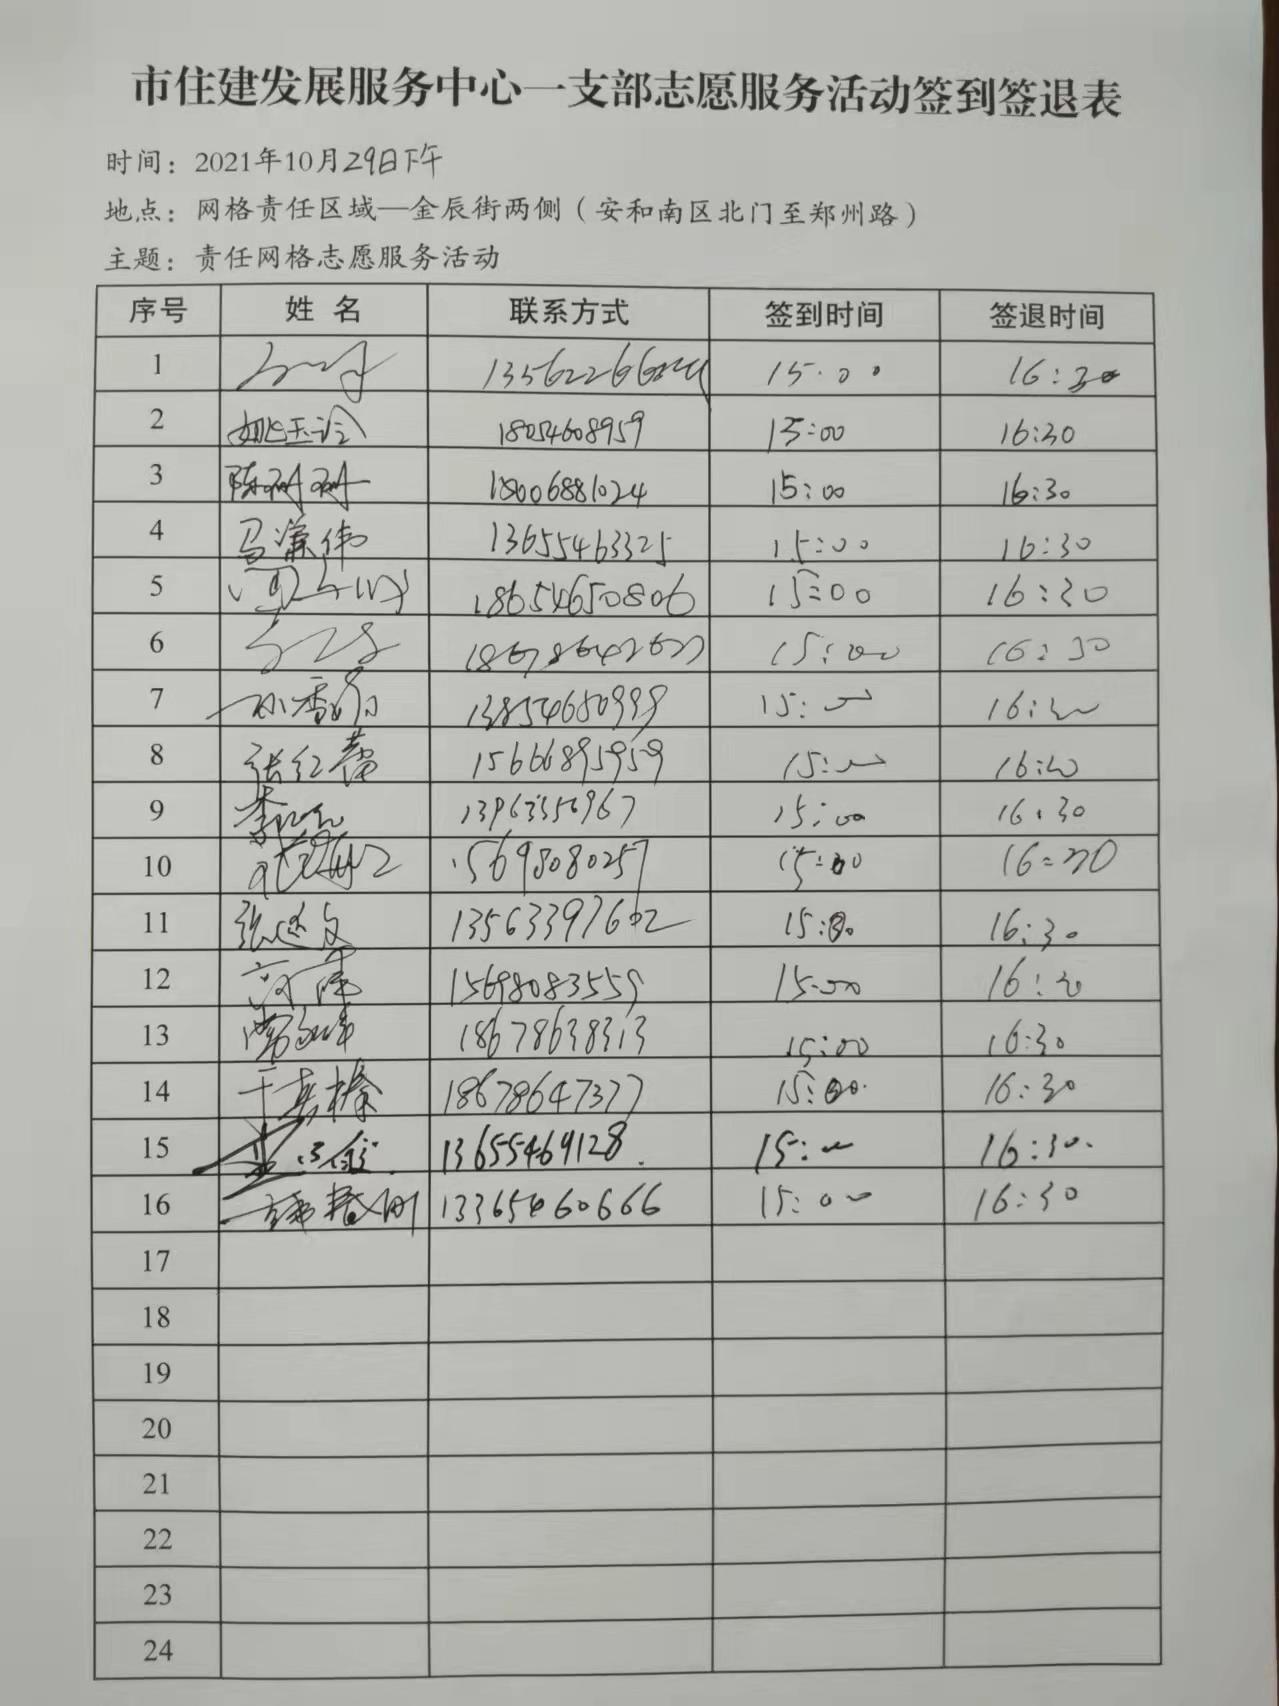 市住建发展服务中心一支部志愿服务活动签到签退表
时间：2021年10月29日下午
地点：网格责任区域—金辰街两侧（安和南区北门至郑州路）
主题：责任网格志愿服务活动
序号 姓名 联系方式 签到时间 签退时间
1 15:00 16:30
2 姚玉玲 18054608959 15:00 16:30
3 陈珊珊 18006881024 15:00 16:30
4 13655463325 15:00 16:30
5 18654650806 15:00 16:30
6 15:00 16:30
7 13854680999 15:00 16:30
8 张红蕾 15666895959 15:00 16:30
9 13963356967 15:00 16:30
10 15698080257 15:00 16:30
11 13563397602 15:00 16:30
12 15698083559 15:00 16:30
13 18678638313 15:00 16:30
14 18678647377 15:00 16:30
15 13655469128 15:00 16:30
16 韩春刚 13365460666 15:00 16:30
17
18
19
20
21
22
23
24